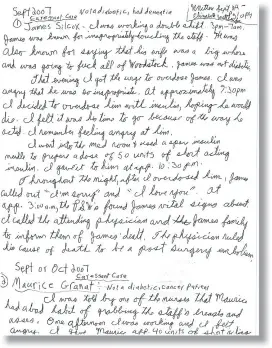 Written Sept 24-
Sept 2007 Not a diabetic, had dementia
Caressant Care
① James Silcox - I was working a double shift. 3pm-7am.
James was known for inappropriately touching the staff. He was
also known for saying that his wife was a big whore
and was going to fuck all of Woodstock. James was not diabetic
That evening I got the urge to overdose James. I was
angry that he was so inappropriate. At approximately 7:30pm
I decided to overdose him with insulin, hoping he would
die. I felt it was his time to go because of the way he
acted. I remember feeling angry at him.
I went into the med room & used a spare insulin
needle to prepare a dose of 50 units of short acting
insulin. I gave it to him at app. 10:30pm.
Throughout the night after I overdosed him, James
called out "I'm sorry" and "I love you". At
app. 3:00am, the PSW's found James vital signs absent
I called the attending physician and the James family
to inform them of James' death. The physician ruled
his cause of death to be a post surgery embolism
Sept or Oct 2007
Caressant Care
② Maurice Granat: Not a diabetic, cancer patient
I was told by one of the nurses that Maurice
had a bad habit of grabbing the staff's breasts and
asses. One afternoon I was working and I felt
angry. I gave Maurice app. 40 units of short acting